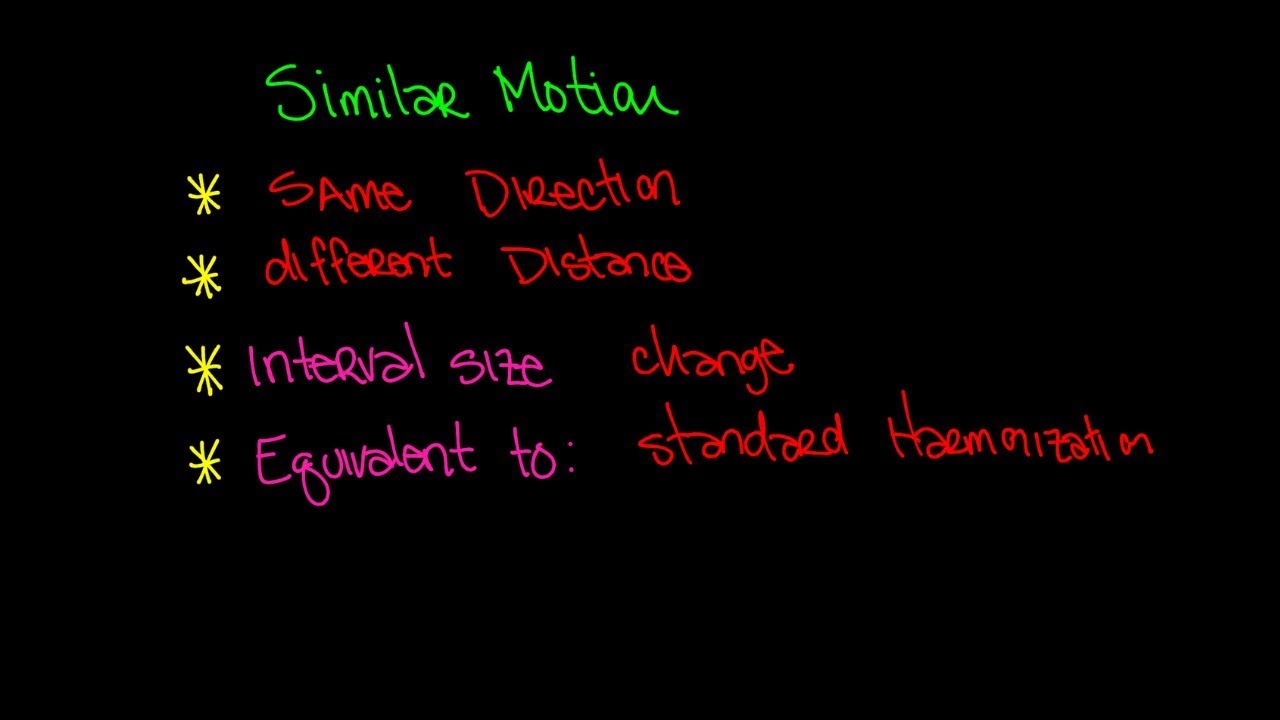 Similar Motion
* SAme DIRection
* different DIstance
* Interval size change
* Equivalent to: standard Harmonization